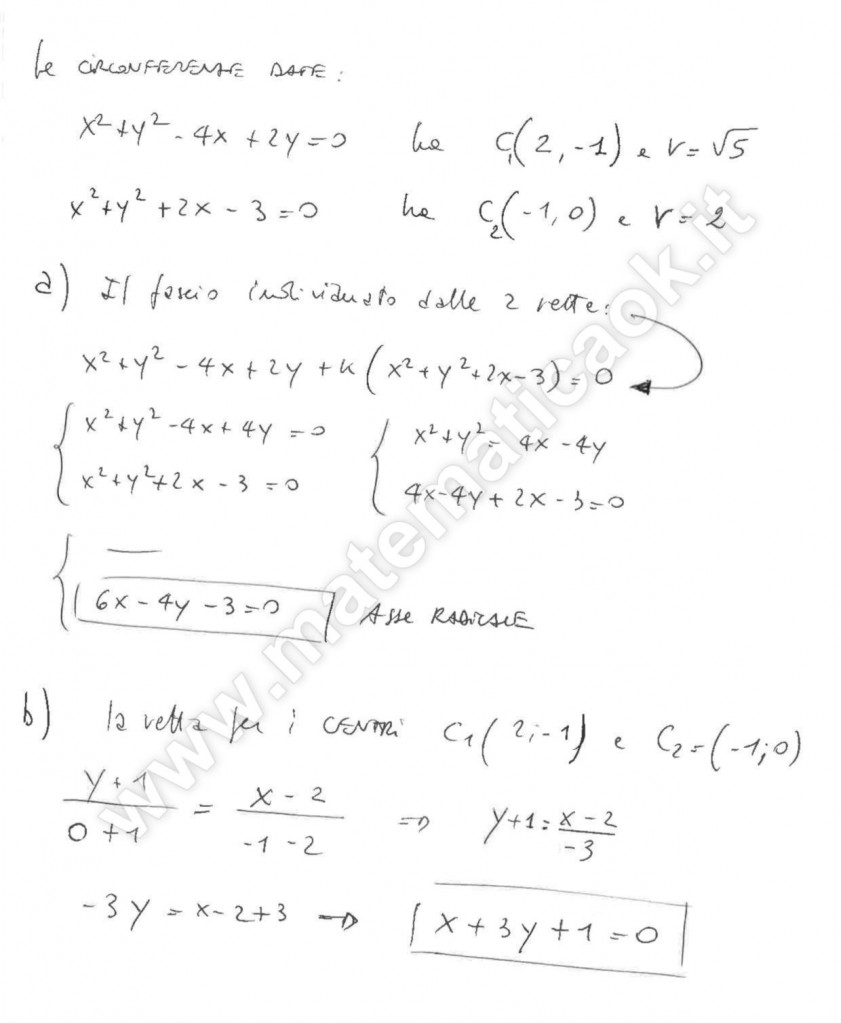 Le CIRCONFERENZE DATE:
x²+y²-4x+2y=0 ha C₁(2,-1) e r=√5
x²+y²+2x-3=0 ha C₂(-1,0) e r=2
a) Il fascio individuato dalle 2 rette:
x²+y²-4x+2y+k(x²+y²+2x-3)=0
{ x²+y²-4x+4y=0 { x²+y²=4x-4y
x²+y²+2x-3=0 4x-4y+2x-3=0
{ —
6x-4y-3=0 ASSE RADICALE
b) la retta per i CENTRI C₁(2;-1) e C₂=(-1;0)
(y+1)/(0+1) = (x-2)/(-1-2) ⇒ y+1=(x-2)/(-3)
-3y=x-2+3 → x+3y+1=0
www.matematicaok.it